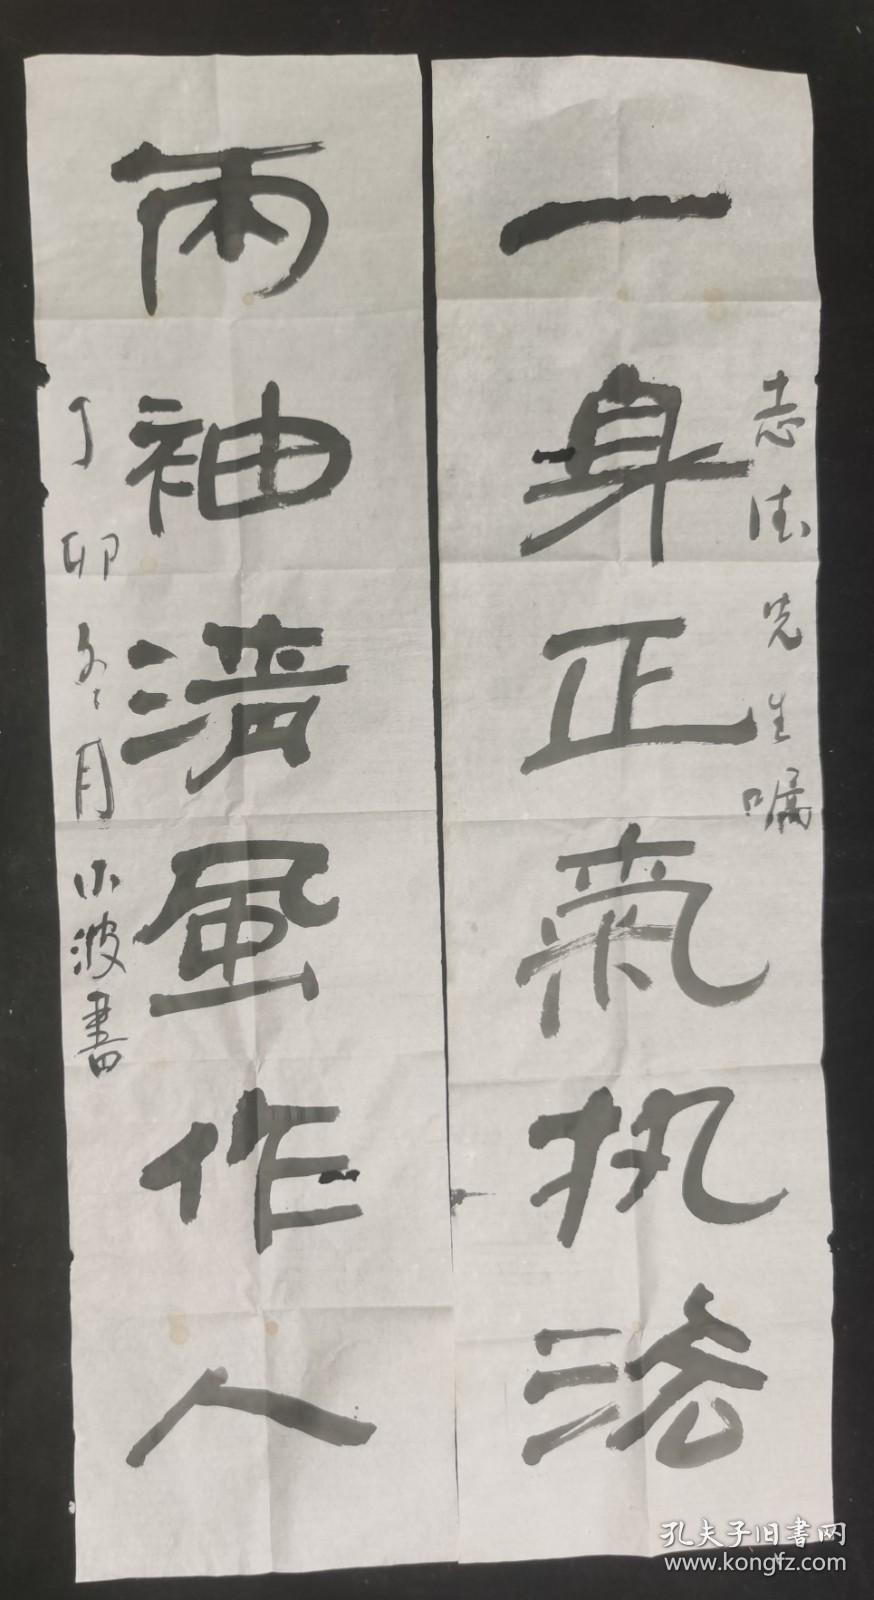 一身正氣执法
志法先生嘱
兩袖清風作人
丁卯冬月小波書
孔夫子旧書网
www.kongfz.com